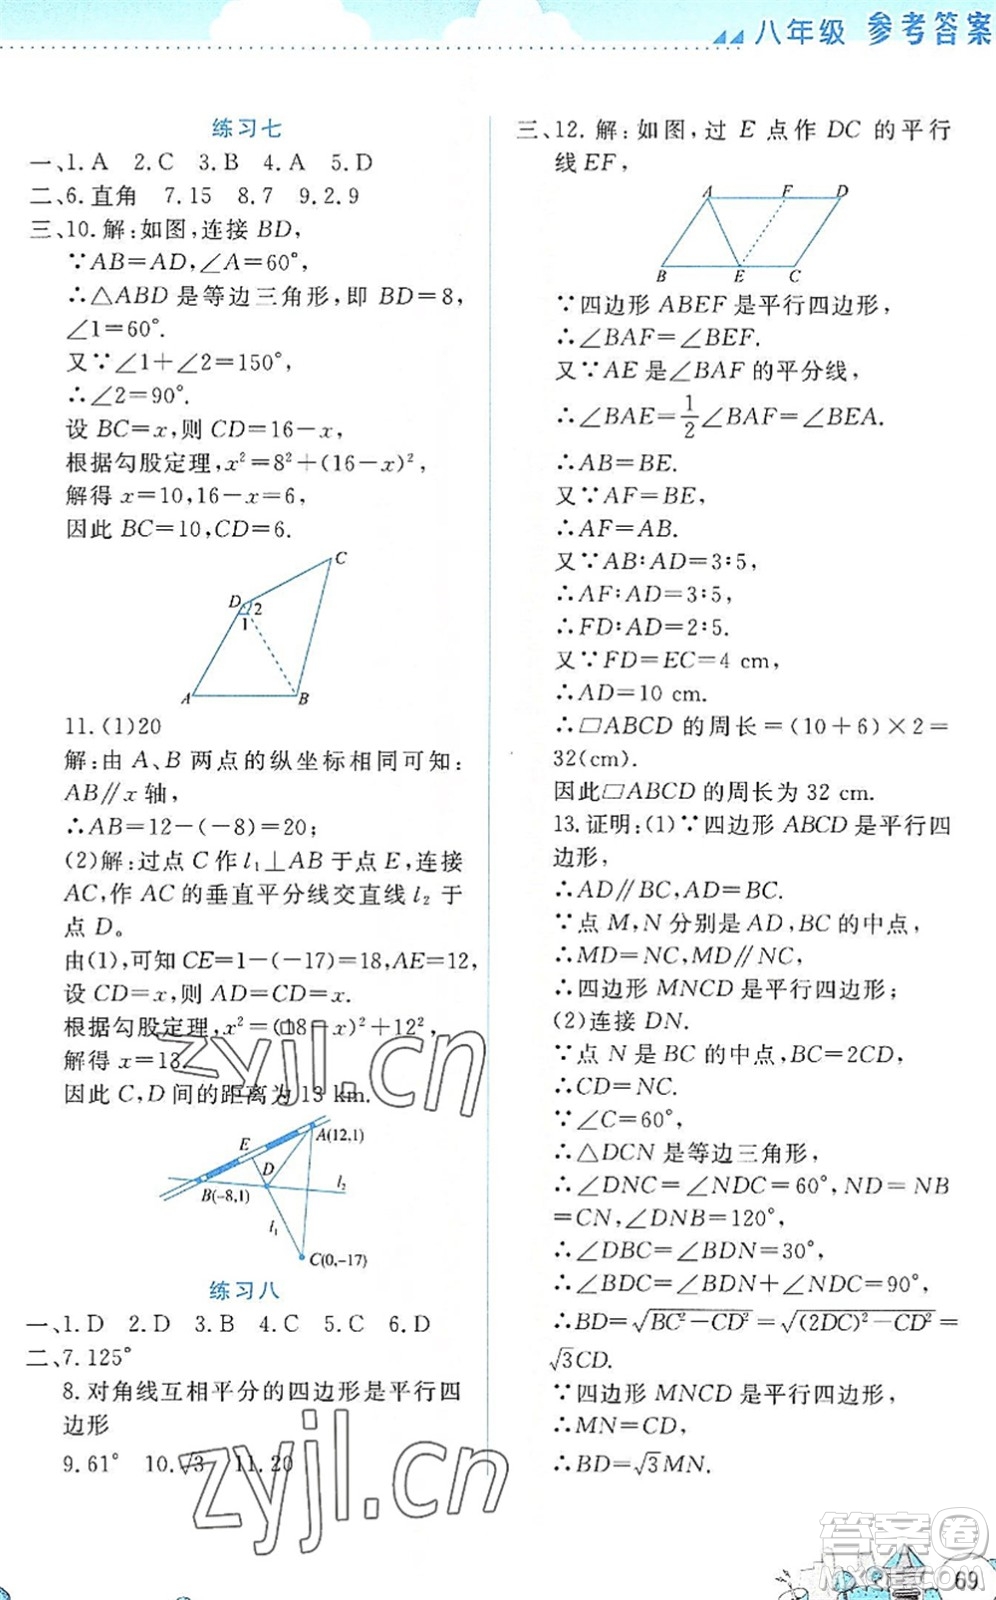 八年级 参考答案
练习七
一、1.A 2.C 3.B 4.A 5.D
二、6.直角 7.15 8.7 9.2.9
三、10.解:如图,连接 BD,
∵AB=AD,∠A=60°,
∴△ABD 是等边三角形,即 BD=8,
∠1=60°.
又∵∠1+∠2=150°,
∴∠2=90°.
设 BC=x,则 CD=16-x,
根据勾股定理,x²=8²+(16-x)²,
解得 x=10,16-x=6,
因此 BC=10,CD=6.
C
D
2
1
A
B
11.(1)20
解:由 A、B 两点的纵坐标相同可知:
AB∥x 轴,
∴AB=12-(-8)=20;
(2)解:过点 C 作 l₁⊥AB 于点 E,连接
AC,作 AC 的垂直平分线交直线 l₂ 于
点 D。
由(1),可知 CE=1-(-17)=18,AE=12,
设 CD=x,则 AD=CD=x.
根据勾股定理,x²=(18-x)²+12²,
解得 x=13.
因此 C,D 间的距离为 13 km.
E
A(12,1)
D
B(-8,1)
l₂
l₁
C(0,-17)
练习八
一、1.D 2.D 3.B 4.C 5.C 6.D
二、7.125°
8.对角线互相平分的四边形是平行四
边形
9.61° 10.√3 11.20
三、12.解:如图,过 E 点作 DC 的平行
线 EF,
A F D
B E C
∵四边形 ABEF 是平行四边形,
∴∠BAF=∠BEF.
又∵AE 是∠BAF 的平分线,
∴∠BAE=1/2∠BAF=∠BEA.
∴AB=BE.
又∵AF=BE,
∴AF=AB.
又∵AB∶AD=3∶5,
∴AF∶AD=3∶5,
∴FD∶AD=2∶5.
又∵FD=EC=4 cm,
∴AD=10 cm.
∴▱ABCD 的周长=(10+6)×2=
32(cm).
因此▱ABCD 的周长为 32 cm.
13.证明:(1)∵四边形 ABCD 是平行四
边形,
∴AD∥BC,AD=BC.
∵点 M,N 分别是 AD,BC 的中点,
∴MD=NC,MD∥NC,
∴四边形 MNCD 是平行四边形;
(2)连接 DN.
∵点 N 是 BC 的中点,BC=2CD,
∴CD=NC.
∵∠C=60°,
∴△DCN 是等边三角形,
∴∠DNC=∠NDC=60°,ND=NB
=CN,∠DNB=120°,
∴∠DBC=∠BDN=30°,
∴∠BDC=∠BDN+∠NDC=90°,
∴BD=√(BC²-CD²)=√((2DC)²-CD²)=
√3CD.
∵四边形 MNCD 是平行四边形,
∴MN=CD,
∴BD=√3MN.
zyjl.cn
zyjl.cn
答案圈
MXQE.COM
69